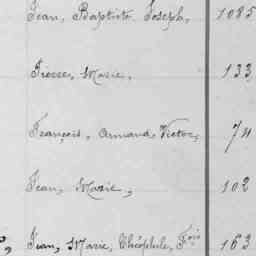 Jean, Baptiste Joseph, 1085
Pierre, Marie, 133
François, Armand, Victor, 74
Jean, Marie, 102
Jean, Marie, Théophile, Fois 163